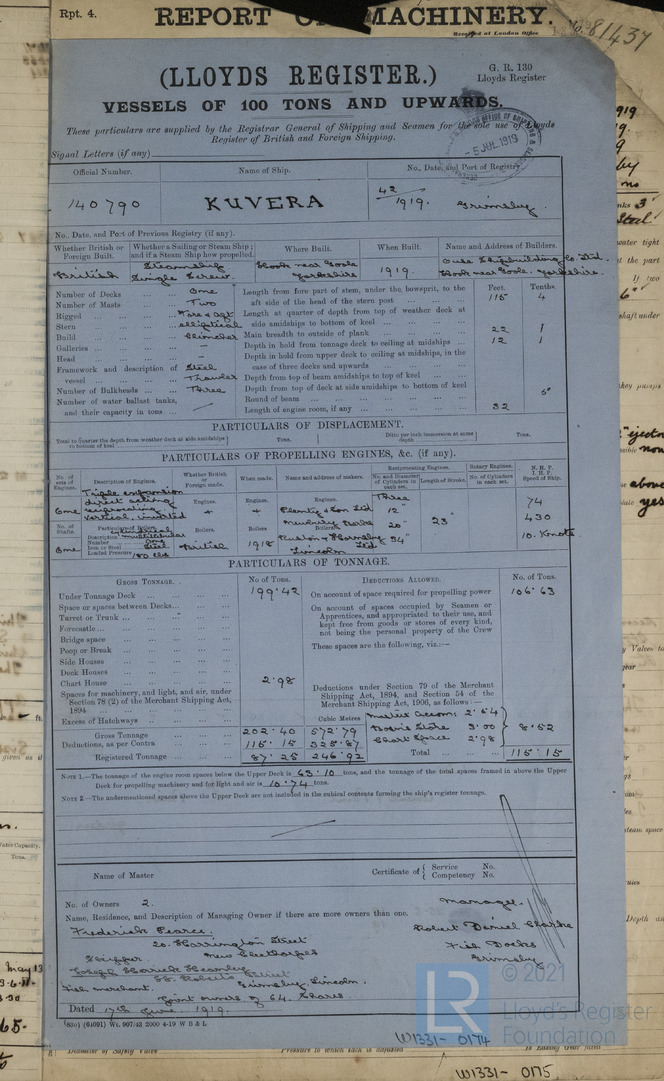 Rpt. 4.
REPORT OF MACHINERY.
Received at London Office
No. 81437
(LLOYDS REGISTER.)
G. R. 130
Lloyds Register
VESSELS OF 100 TONS AND UPWARDS.
These particulars are supplied by the Registrar General of Shipping and Seamen for the sole use of Lloyds
Register of British and Foreign Shipping.
- 5 JUL 1919
Signal Letters (if any)
Official Number. Name of Ship. No., Date, and Port of Registry
140790 KUVERA 42/1919. Grimsby.
No., Date, and Port of Previous Registry (if any).
Whether British or Foreign Built. Whether a Sailing or Steam Ship; and if a Steam Ship how propelled. Where Built. When Built. Name and Address of Builders.
British Steamship Single Screw. Hook near Goole Yorkshire 1919. Ouse Shipbuilding Co Ltd. Hook near Goole. Yorkshire.
Number of Decks One
Number of Masts Two
Rigged Fore & aft
Stern elliptical
Build Clincher
Galleries –
Head –
Framework and description of vessel Steel Trawler
Number of Bulkheads Three
Number of water ballast tanks, and their capacity in tons
Feet. Tenths.
Length from fore part of stem, under the bowsprit, to the aft side of the head of the stern post 115 4
Length at quarter of depth from top of weather deck at side amidships to bottom of keel
Main breadth to outside of plank 22 1
Depth in hold from tonnage deck to ceiling at midships 12 1
Depth in hold from upper deck to ceiling at midships, in the case of three decks and upwards
Depth from top of beam amidships to top of keel
Depth from top of deck at side amidships to bottom of keel
Round of beam
Length of engine room, if any 32
PARTICULARS OF DISPLACEMENT.
Total to quarter the depth from weather deck at side amidships to bottom of keel Tons. Ditto per inch immersion at same depth Tons.
PARTICULARS OF PROPELLING ENGINES, &c. (if any).
No. of sets of Engines. Description of Engines. Whether British or Foreign made. When made. Name and address of makers. Reciprocating Engines. No. and Diameter of Cylinders in each set. Length of Stroke. Rotary Engines. No. of Cylinders in each set. N. H. P. I. H. P. Speed of Ship.
One Triple expansion direct acting reciprocating vertical, inverted Engines. Engines. Engines. Plenty & Son Ltd Newbury Three 12" 20" 34" 23" 74 430 10. Knots
No. of Shafts. Particulars of Boilers. Boilers. Boilers Boilers.
One Description multitubular Number One Iron or Steel Steel Loaded Pressure 180 lbs British 1918 Ruston & Hornsby Ltd Lincoln
PARTICULARS OF TONNAGE.
GROSS TONNAGE. No. of Tons. DEDUCTIONS ALLOWED. No. of Tons.
Under Tonnage Deck 199.42
Space or spaces between Decks
Turret or Trunk
Forecastle
Bridge space
Poop or Break
Side Houses
Deck Houses
Chart House 2.98
Spaces for machinery, and light, and air, under Section 78 (2) of the Merchant Shipping Act, 1894
Excess of Hatchways
Cubic Metres
Gross Tonnage 202.40 572.79
Deductions, as per Contra 115.15 325.87
Registered Tonnage 87.25 246.92
On account of space required for propelling power 106.63
On account of spaces occupied by Seamen or Apprentices, and appropriated to their use, and kept free from goods or stores of every kind, not being the personal property of the Crew
These spaces are the following, viz.:—
Deductions under Section 79 of the Merchant Shipping Act, 1894, and Section 54 of the Merchant Shipping Act, 1906, as follows:—
Master's Accom: 2.54
Bosn's Store 3.00
Chart Space 2.98
8.52
Total 115.15
NOTE 1.—The tonnage of the engine room spaces below the Upper Deck is 63.10 tons, and the tonnage of the total spaces framed in above the Upper
Deck for propelling machinery and for light and air is 10.74 tons.
NOTE 2.—The undermentioned spaces above the Upper Deck are not included in the cubical contents forming the ship's register tonnage.
Name of Master Certificate of { Service No. Competency No.
No. of Owners 2.
Name, Residence, and Description of Managing Owner if there are more owners than one.
Frederick Pearce.
20. Harrington Street
New Cleethorpes
Skipper
Grimsby, Lincoln.
Fish merchant.
Joint owners of 64 Shares
Manager.
Robert Daniel Clarke
Fish Docks
Grimsby
Dated 17th June. 1919.
(83o) (61091) Wt. 967/43 2000 4-19 W B & L
LR © 2021
Lloyd's Register
Foundation
W1331- 0174
W1331- 0175